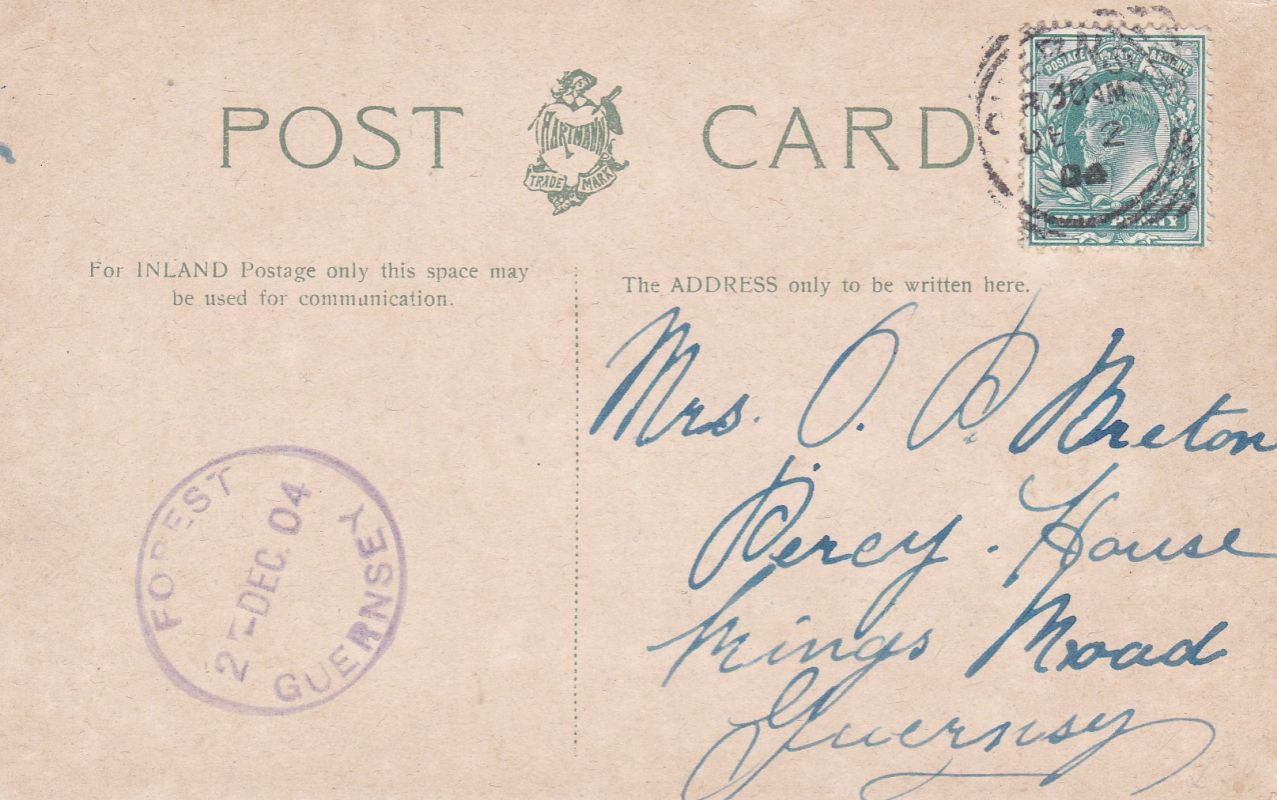 POST CARD
HARTMANN
TRADE MARK
POSTAGE REVENUE
GUERNSEY
30 AM
DE 2
04
HALF PENNY
For INLAND Postage only this space may
be used for communication.
The ADDRESS only to be written here.
Mrs. O. P. Breton
Percy House
Kings Road
Guernsy
FOREST
2-DEC. 04
GUERNSEY